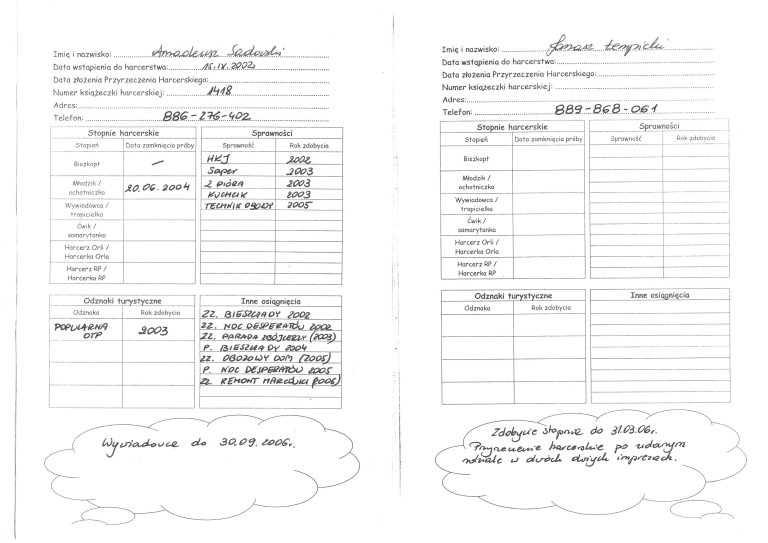 Imię i nazwisko: Amadeusz Sadowski
Data wstąpienia do harcerstwa: 15.IX.2002
Data złożenia Przyrzeczenia Harcerskiego:
Numer książeczki harcerskiej: 1418
Adres:
Telefon: 886-276-402
Stopnie harcerskie
Stopień Data zamknięcia próby
Biszkopt —
Młodzik / ochotniczka 20.06.2004
Wywiadowca / tropicielka
Ćwik / samarytanka
Harcerz Orli / Harcerka Orla
Harcerz RP / Harcerka RP
Sprawności
Sprawność Rok zdobycia
HKJ 2002
Saper 2003
2 PIÓRA 2003
KUCHCIK 2003
TECHNIK OBOZOWY 2005
Odznaki turystyczne
Odznaka Rok zdobycia
POPULARNA OTP 2003
Inne osiągnięcia
ZZ. BIESZCZADY 2002
ZZ. NOC DESPERATÓW 2002
ZZ. PARADA ZBÓJCERZY (2003)
P. BIESZCZADY 2004
ZZ. OBOZOWY DOM (2005)
P. NOC DESPERATÓW 2005
ZZ. REMONT MARCÓWKI (2006)
Wywiadowca do 30.09.2006r.
Imię i nazwisko: Łempicki
Data wstąpienia do harcerstwa:
Data złożenia Przyrzeczenia Harcerskiego:
Numer książeczki harcerskiej:
Adres:
Telefon: 889-868-061
Stopnie harcerskie
Stopień Data zamknięcia próby
Biszkopt
Młodzik / ochotniczka
Wywiadowca / tropicielka
Ćwik / samarytanka
Harcerz Orli / Harcerka Orla
Harcerz RP / Harcerka RP
Sprawności
Sprawność Rok zdobycia
Odznaki turystyczne
Odznaka Rok zdobycia
Inne osiągnięcia
Zdobycie stopnia do 31.03.06r.
Przyrzeczenie harcerskie po udanym
udziale w dwóch dużych imprezach.